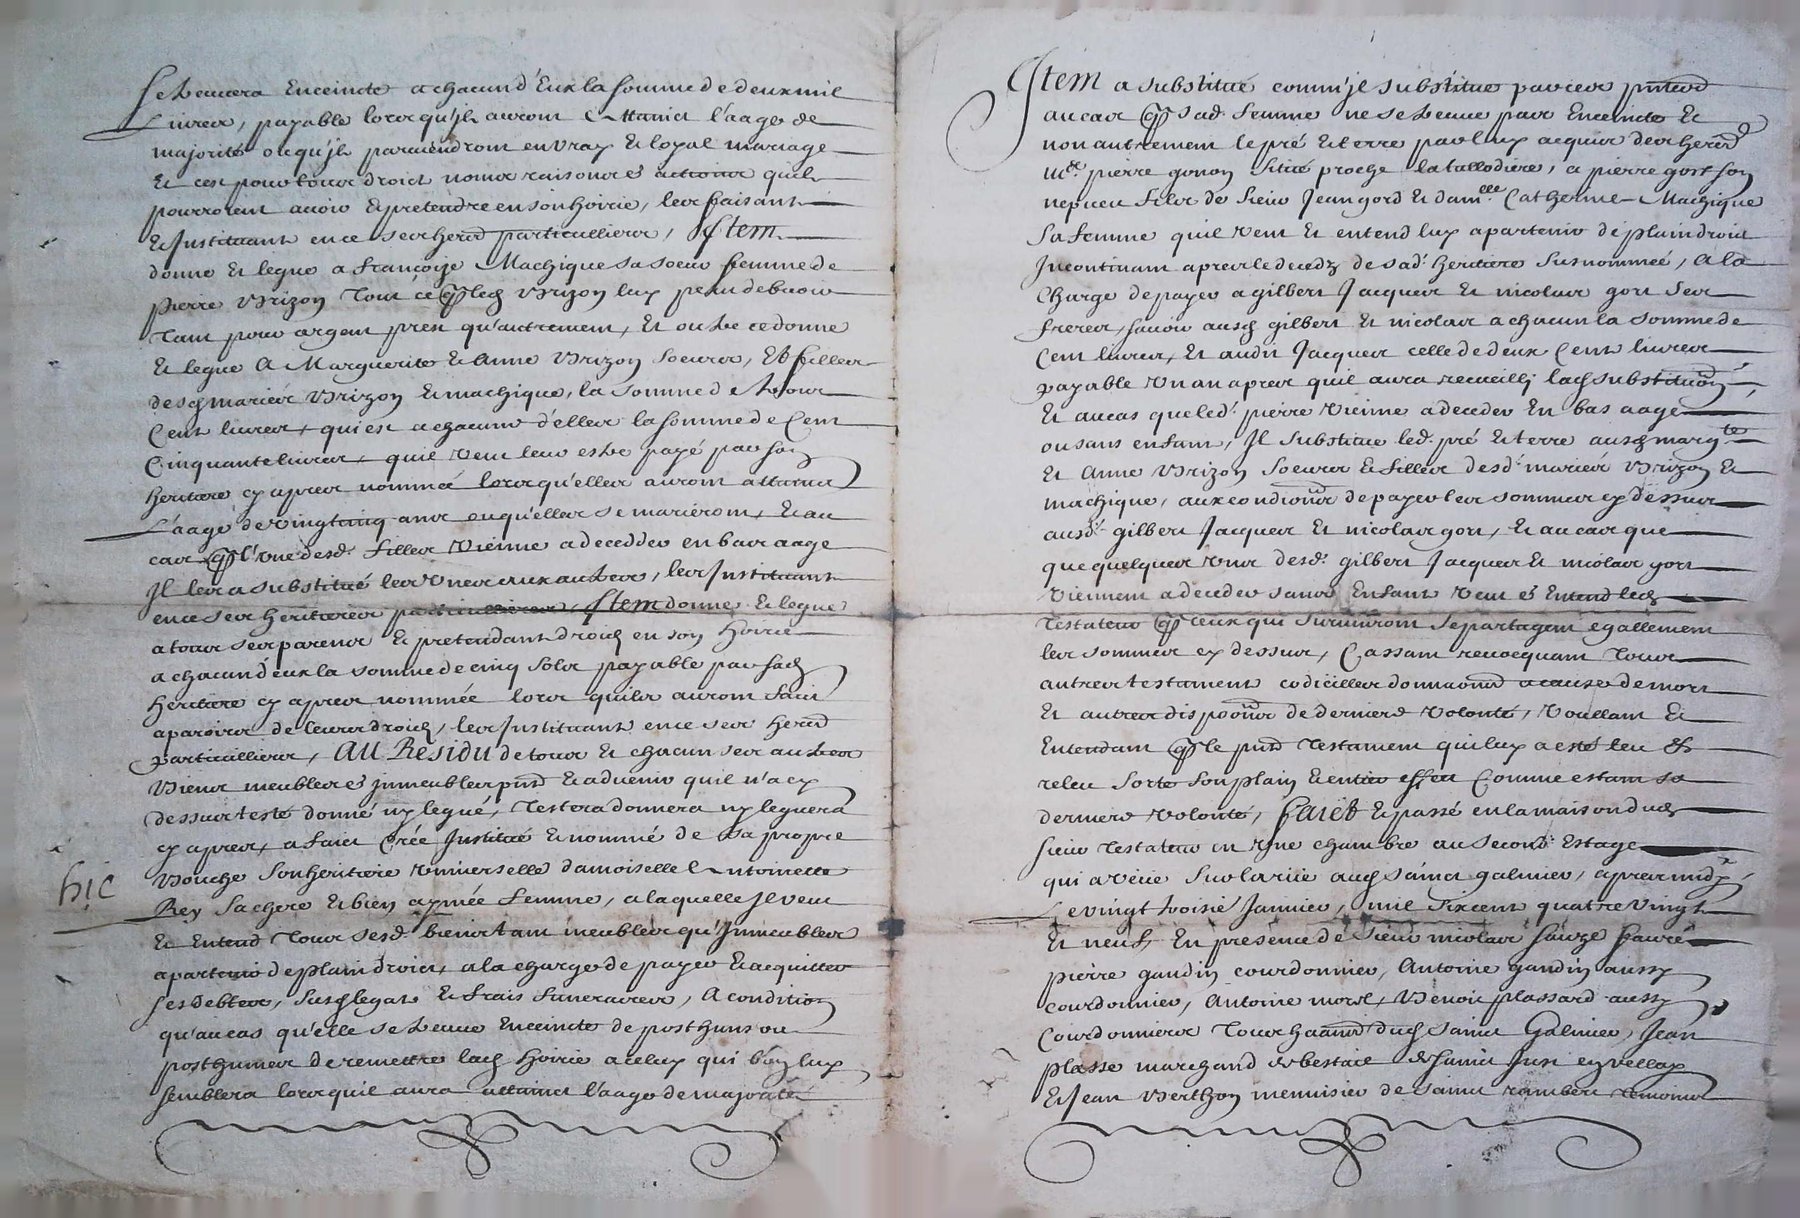 se treuvera Enceincte a chacun d'Eux la somme de deux mil
Livres, payable lorsqu'jls auront Attainct l'aage de
majorité ou qu'jls parviendront en vray & loyal mariage
Et ces pour tous droicts noms raisons & actions quils
pourroient avoir & pretendre en son hoirie, les faisant
& Jnstituant en ce ses herits particulliers, Jtem
donne et legue a françoize Machique sa soeur femme de
pierre Brizon tout ce q led Brizon luy peu debvoir
tant pour argent prest qu'autrement, Et outre ce donne
Et legue A Marguerite & Anne Brizon soeurs, Et filles
desd mariés Brizon & machique, la somme de trois
Cent livres, qui est a chacune d'elles la somme de Cent
Cinquante livres, quil veut leur estre payé par son
heritiere cy apres nommée lorsqu'elles auront attainct
L'aage de vingtcinq ans ou qu'elles se marieront, Et au
cas q l'une desd. filles vienne a decedder en bas aage
Jl les a substitué les unes aux autres, les Jnstituant
en ce ses heritieres particullieres, Jtem donne & legue
a tous ses parens & pretendant droicts en son hoirie
a chacun d'eux la somme de cinq sols payable par sad
heritiere cy apres nommée lors quils auront faict
aparoir de leurs droicts, les Jnstituant en ce ses herits
particulliers, AU RESIDU de tous Et chacun ses autres
Biens meubles & jmmeubles pnts & advenir quil n'a cy
dessus testé donné ny legué, testera donnera ny leguera
cy apres, a faict Crée Jnstitué & nommé de sa propre
Bouche son heritiere universelle damoiselle Antoinette
hic
Rey sa chere & bien aymée femme, a laquelle Jl veut
Et Entend tous sesd. biens tant meubles qu'Jmmeubles
apartenir de plain droict, a la charge de payer & acquitter
ses debtes, susd legats & frais funeraires, A condition
qu'au cas qu'elle se treuve Enceincte de posthums ou
posthumes de remettre lad hoirie a celuy qui bon luy
semblera lors quil aura attainct l'aage de majorité
Jtem a substitué comm'jl substitue par ces pntes
au cas q sad. femme ne se treuve pas Enceincte Et
non autrement le pré & terre par luy acquis des herits
Me. pierre gonon situé proche la tallodiere, a pierre gort son
nepveu fils de sieur Jean gord & damlle Catherine Machique
sa femme quil veut Et entend luy apartenir de plain droict
Jncontinant apres le decedz de sad. heritiere susnommée, A la
Charge de payer a gilbert Jacques Et nicolas gort ses
freres, savoir ausd gilbert Et nicolas a chacun la somme de
Cent livres, Et audit Jacques celle de deux Cent livres
payable un an apres quil aura recueilly lad substituon,
Et au cas que led. pierre vienne a deceder En bas aage
ou sans enfant, Jl substitue led. pré & terre ausd margte
Et Anne Brizon soeurs & filles desd. mariés Brizon Et
machique, aux condions de payer les sommes cy dessus
ausd. gilbert Jacques Et nicolas gort, Et au cas que
que quelques uns desd. gilbert Jacques Et nicolas gort
viennent a deceder sans Enfant veut & Entend led
testateur q ceux qui surviuront se partagent egallement
les sommes cy dessus, Cassant revocquant tous
autres testament codicilles donnaons a cause de mort
Et autres dispoons de derniere volonté, Voullant Et
Entendant q le pnt testament qui luy a esté leu &
releu sorte son plain & entier effeu Comme estant sa
derniere volonté, faict & passé en la maison dud
sieur testateur en Une chambre au second Estage
qui a veüe sur la rüe aud sainct galmier, apres midy
Le vingt troisie Janvier, mil sixcent quatre vingt
Et neuf, En presence de sieur nicolas fauge faure
pierre gaudin courdonnier, Antoine gaudin aussy
courdonnier, Antoine morel, Benoit plassard aussy
Courdonniers tous haants dud sainct Galmier, Jean
plasse marchand de bestail de sainct Just en vellay
& Jean Berthon menuisier de sainct rambert temoins